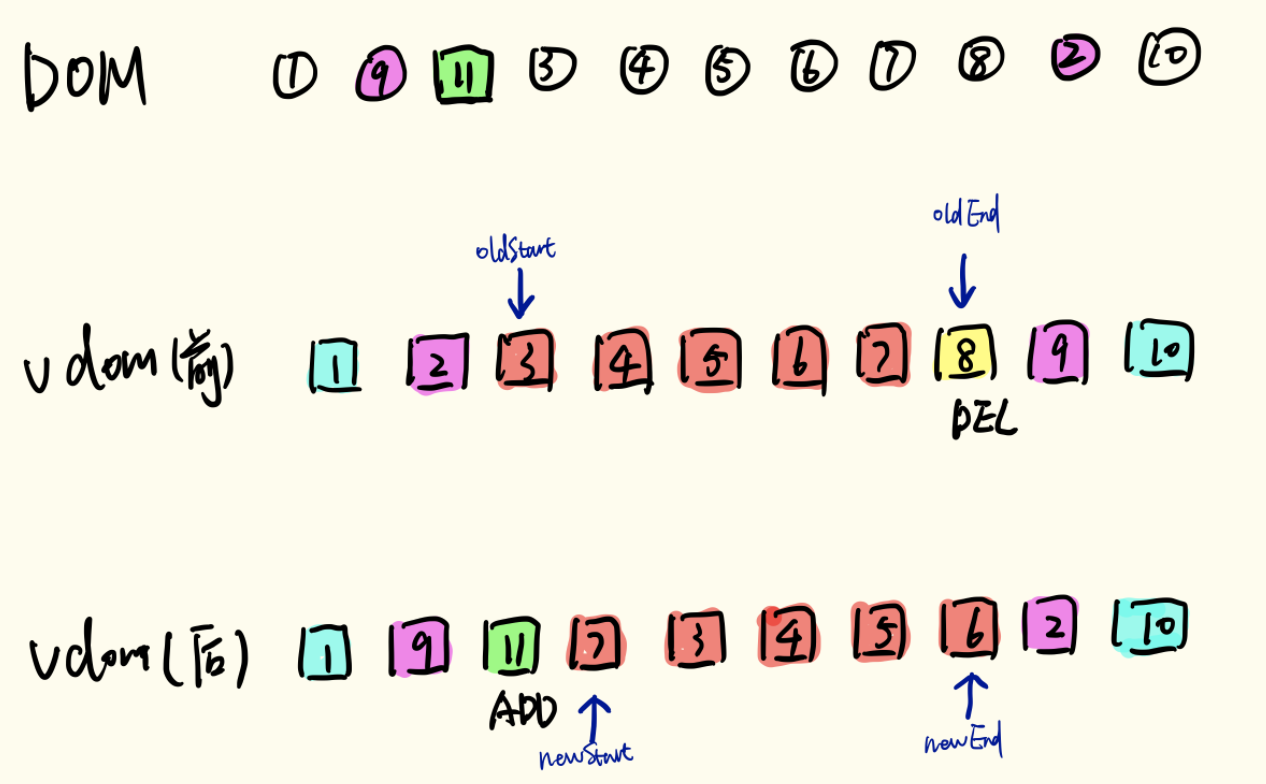 DOM 1 9 11 3 4 5 6 7 8 2 10
oldEnd
oldStart
vdom(前) 1 2 3 4 5 6 7 8 9 10
DEL
vdom(后) 1 9 11 7 3 4 5 6 2 10
ADD
newStart
newEnd